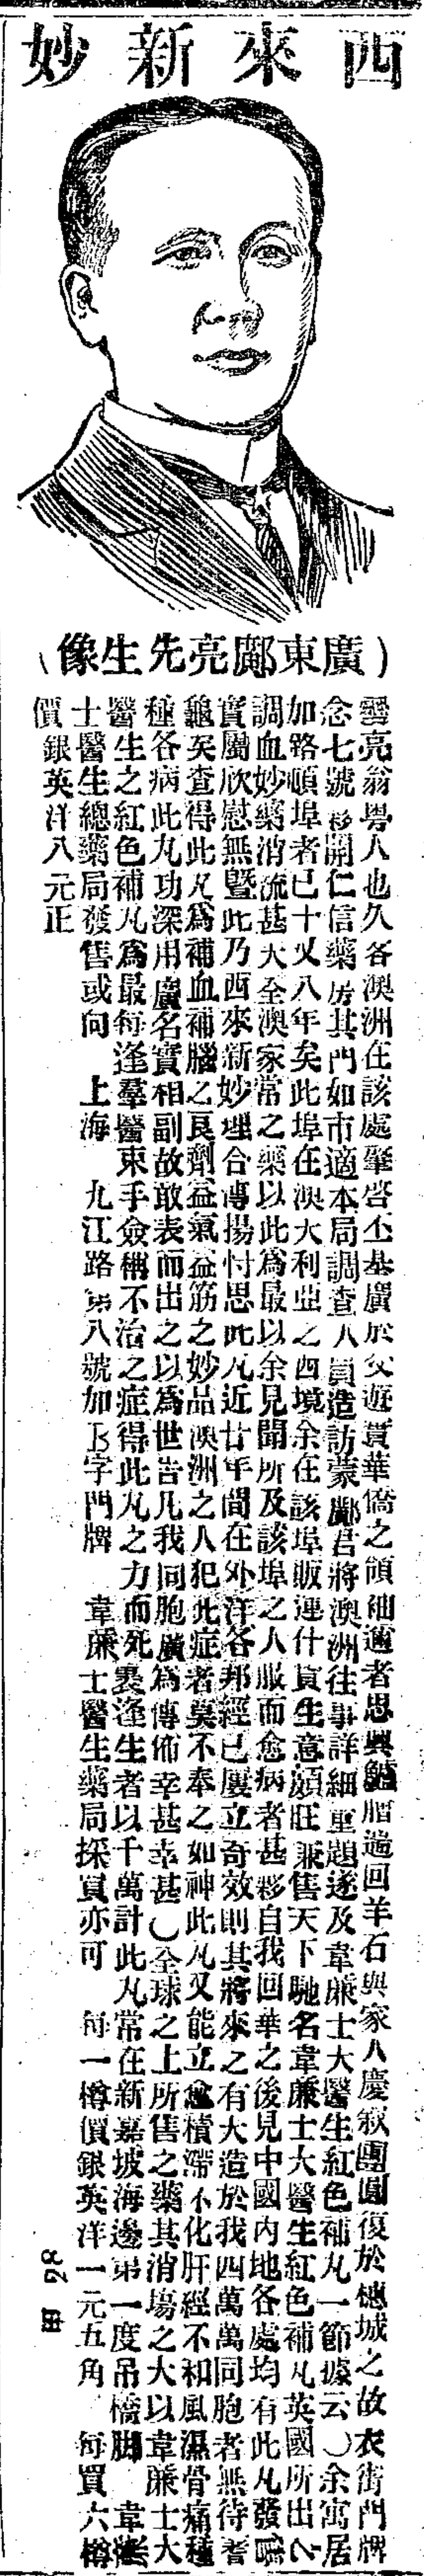 西來新妙
(廣東鄺亮先生像)
雲亮翁粵人也久客澳洲在該處肇啓丕基廣於交遊實華僑之領袖邇者思興鱸膾遄回羊石與家人慶敘團圓復於穗城之故衣街門牌
念七號移開仁信藥房其門如市適本局調查人員造訪蒙鄺君將澳洲往事詳細重題遂及韋廉士大醫生紅色補丸一節據云〇余寓居
加路頓埠者已十又八年矣此埠在澳大利亞之西境余在該埠販運什貨生意頗旺兼售天下馳名韋廉士大醫生紅色補丸英國所出之
調血妙藥消流甚大全澳家常之藥以此爲最以余見聞所及該埠之人服而愈病者甚夥自我回華之後見中國內地各處均有此丸發售
實屬欣慰無暨此乃西來新妙理合傳揚忖思此丸近廿年間在外洋各邦經已屢立奇效則其將來之有大造於我四萬萬同胞者無待蓍
龜矣查得此丸爲補血補腦之良劑益氣益筋之妙品澳洲之人犯此症者莫不奉之如神此丸又能立愈積滯不化肝經不和風濕骨痛種
種各病此丸功深用廣名實相副故敢表而出之以爲世告凡我同胞廣爲傳佈幸甚幸甚〇全球之上所售之藥其消塲之大以韋廉士大
醫生之紅色補丸爲最每逢羣醫束手僉稱不治之症得此丸之力而死裏逢生者以千萬計此丸常在新嘉坡海邊第一度吊橋脚 韋廉
士醫生總藥局發售或向 上海 九江路第八號加B字門牌 韋廉士醫生藥局採買亦可 每一樽價銀英洋一元五角 每買六樽
價銀英洋八元正
28